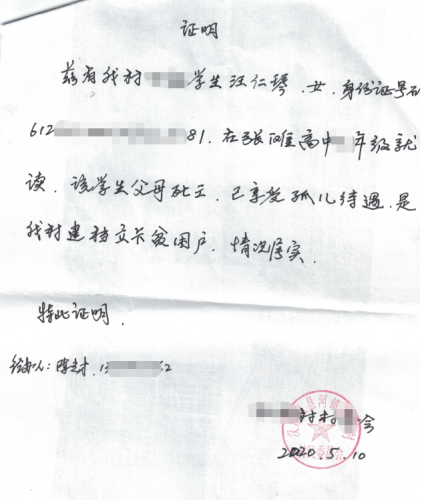 证明
兹有我村 学生汪仁琴.女.身份证号码
612 81.在张滩高中 年级就
读.该学生父母死亡.已享受孤儿待遇.是
我村建档立卡贫困户.情况属实.
特此证明.
经办人:陈 .13 62
村 会
2020.5.10